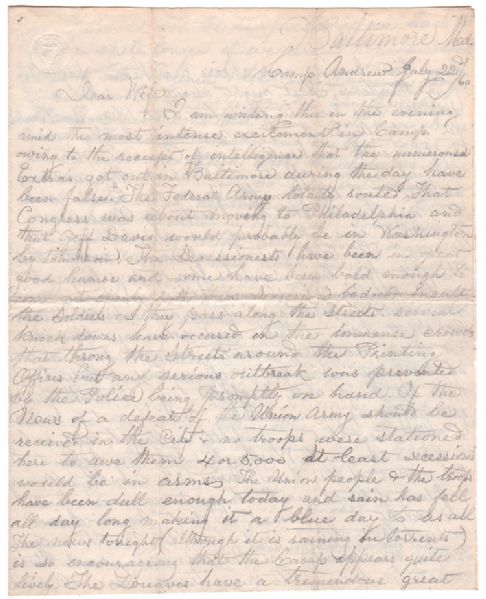 Baltimore Md.
Camp Andrew July 22d
Dear Wife
I am writing this in the evening
mid the most intense excitement in Camp.
owing to the receipt of intelligence that the numerous
Extras got out in Baltimore during the day have
been false. "The Federal Army totally routed That
Congress was about moving to Philadelphia and
that Jeff Davis would probably be in Washington
by tomorrow. The Secessionests have been in great
good humor and some have been bold enough to
the Soldiers as they pass along the streets several
knock downs have occured in the immense crowds
that throng the streets around the Printing
Offices but and serious outbreak was prevented
by the Police being promptly on hand. If the
News of a defeat of the Union Army should be
received in the City & no troops were stationed
here to awe them 4 or 5,000 at least secessionists
would be in arms. The Union people & the troops
have been dull enough today and rain has fell
all day long making it a blue day to us all
The news tonight (though it is raining in torrents)
is so encouraging that the Camp appears quite
lively. The Zouaves have a tremendous great